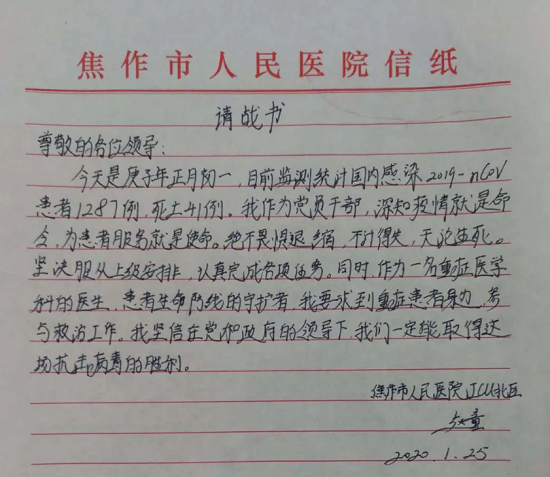 焦作市人民医院信纸
请战书
尊敬的各位领导:
今天是庚子年正月初一,目前监测统计国内感染2019-nCoV
患者1287例,死亡41例。我作为党员干部,深知疫情就是命
令,为患者服务就是使命。绝不畏惧退缩,不计得失,无论生死。
坚决服从上级安排,认真完成各项任务。同时,作为一名重症医学
科的医生,患者生命防线的守护者,我要求到重症患者身边,参
与救治工作。我坚信在党和政府的领导下,我们一定能取得这
场抗击病毒的胜利。
焦作市人民医院ICU北区
2020.1.25